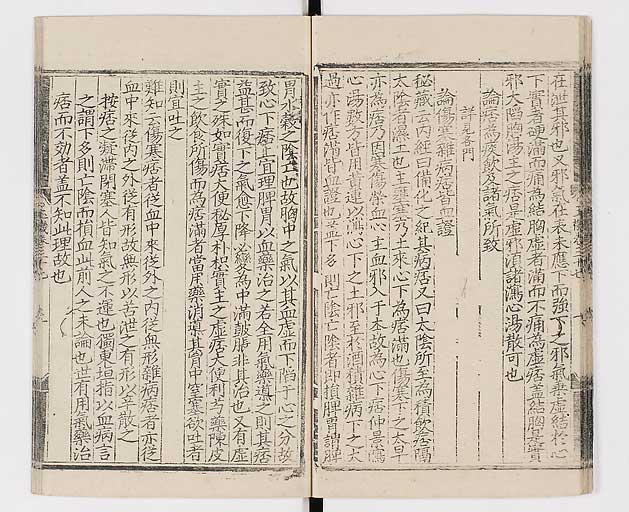 在泄其邪也又邪氣在表未應下而強下之邪氣乘虛結於心
下實者硬滿而痛為結胸虛者滿而不痛為虛痞盖結胸是實
邪大陷胸湯主之痞是虛邪須諸瀉心湯散可也
論痞為痰飲及諸氣所致
詳見各門
論傷寒雜病痞皆血證
秘藏云內經曰備化之紀其病痞又曰太陰所至為積飲痞隔
太陰者濕土也主壅塞乃土來心下為痞滿也傷寒下之太早
亦為痞乃因寒傷榮血心主血邪入于本故為心下痞仲景瀉
心湯數方皆用黃連以瀉心下之土邪至於酒積雜病下之太
過亦作痞滿皆血證也下多則亡陰亡陰者即損脾胃謂脾
胃水穀之陰亡也故胸中之氣以其血虛而下陷于心之分故
致心下痞上宜理脾胃以血藥治之若全用氣藥導之則其痞
益甚而復下之氣愈下降必變為中滿皷脹非其治也又有虛
實之殊如實痞大便秘厚朴枳實主之虛痞大便利芍藥陳皮
主之飲食所傷而為痞滿者當用藥消導其胃中窒塞欲吐者
則宜吐之
難知云傷寒痞者從血中來從外之內從無形雜病痞者亦從
血中來從內之外從有形故無形以苦泄之有形以辛散之
按痞之凝滯閉塞人皆知氣之不運也獨東垣指以血病言
之謂下多則亡陰而損血此前人之未論也世有用氣藥治
痞而不効者盖不知此理故也